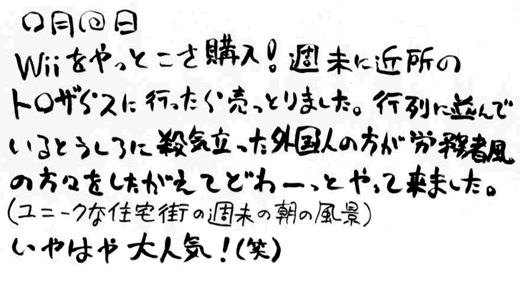 ○月○日
Wiiをやっとこさ購入！週末に近所の
トロザらスに行ったら売っとりました。行列に並んで
いるとうしろに殺気立った外国人の方が労務者風
の方々をしたがえてどわーっとやって来ました。
(ユニークな住宅街の週末の朝の風景)
いやはや大人気！(笑)